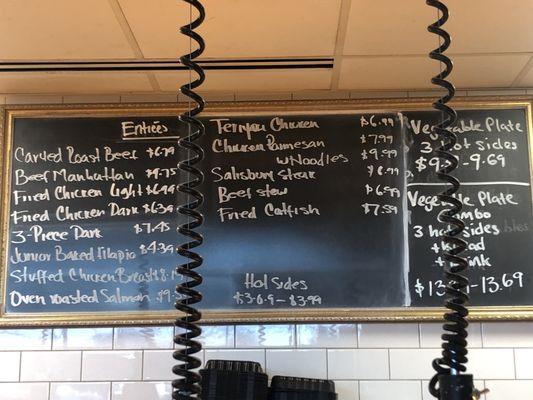 Entrées
Carved Roast Beef $6.79
Beef Manhattan
Fried Chicken Light $6.99
Fried Chicken Dark $6.39
3-Piece Dark $7.45
Junior Baked Tilapia $4.39
Stuffed Chicken Breast
Oven roasted Salmon
Teriyaki Chicken $6.99
Chicken Parmesan $7.99
w/Noodles $9.99
Salisbury Steak $8.99
Beef Stew $6.99
Fried Catfish $7.59
Hot Sides
$3.69 - $3.99
Vegetable Plate
3 Hot Sides
- 9.69
Vegetable Plate
Combo
3 hot sides
- 13.69